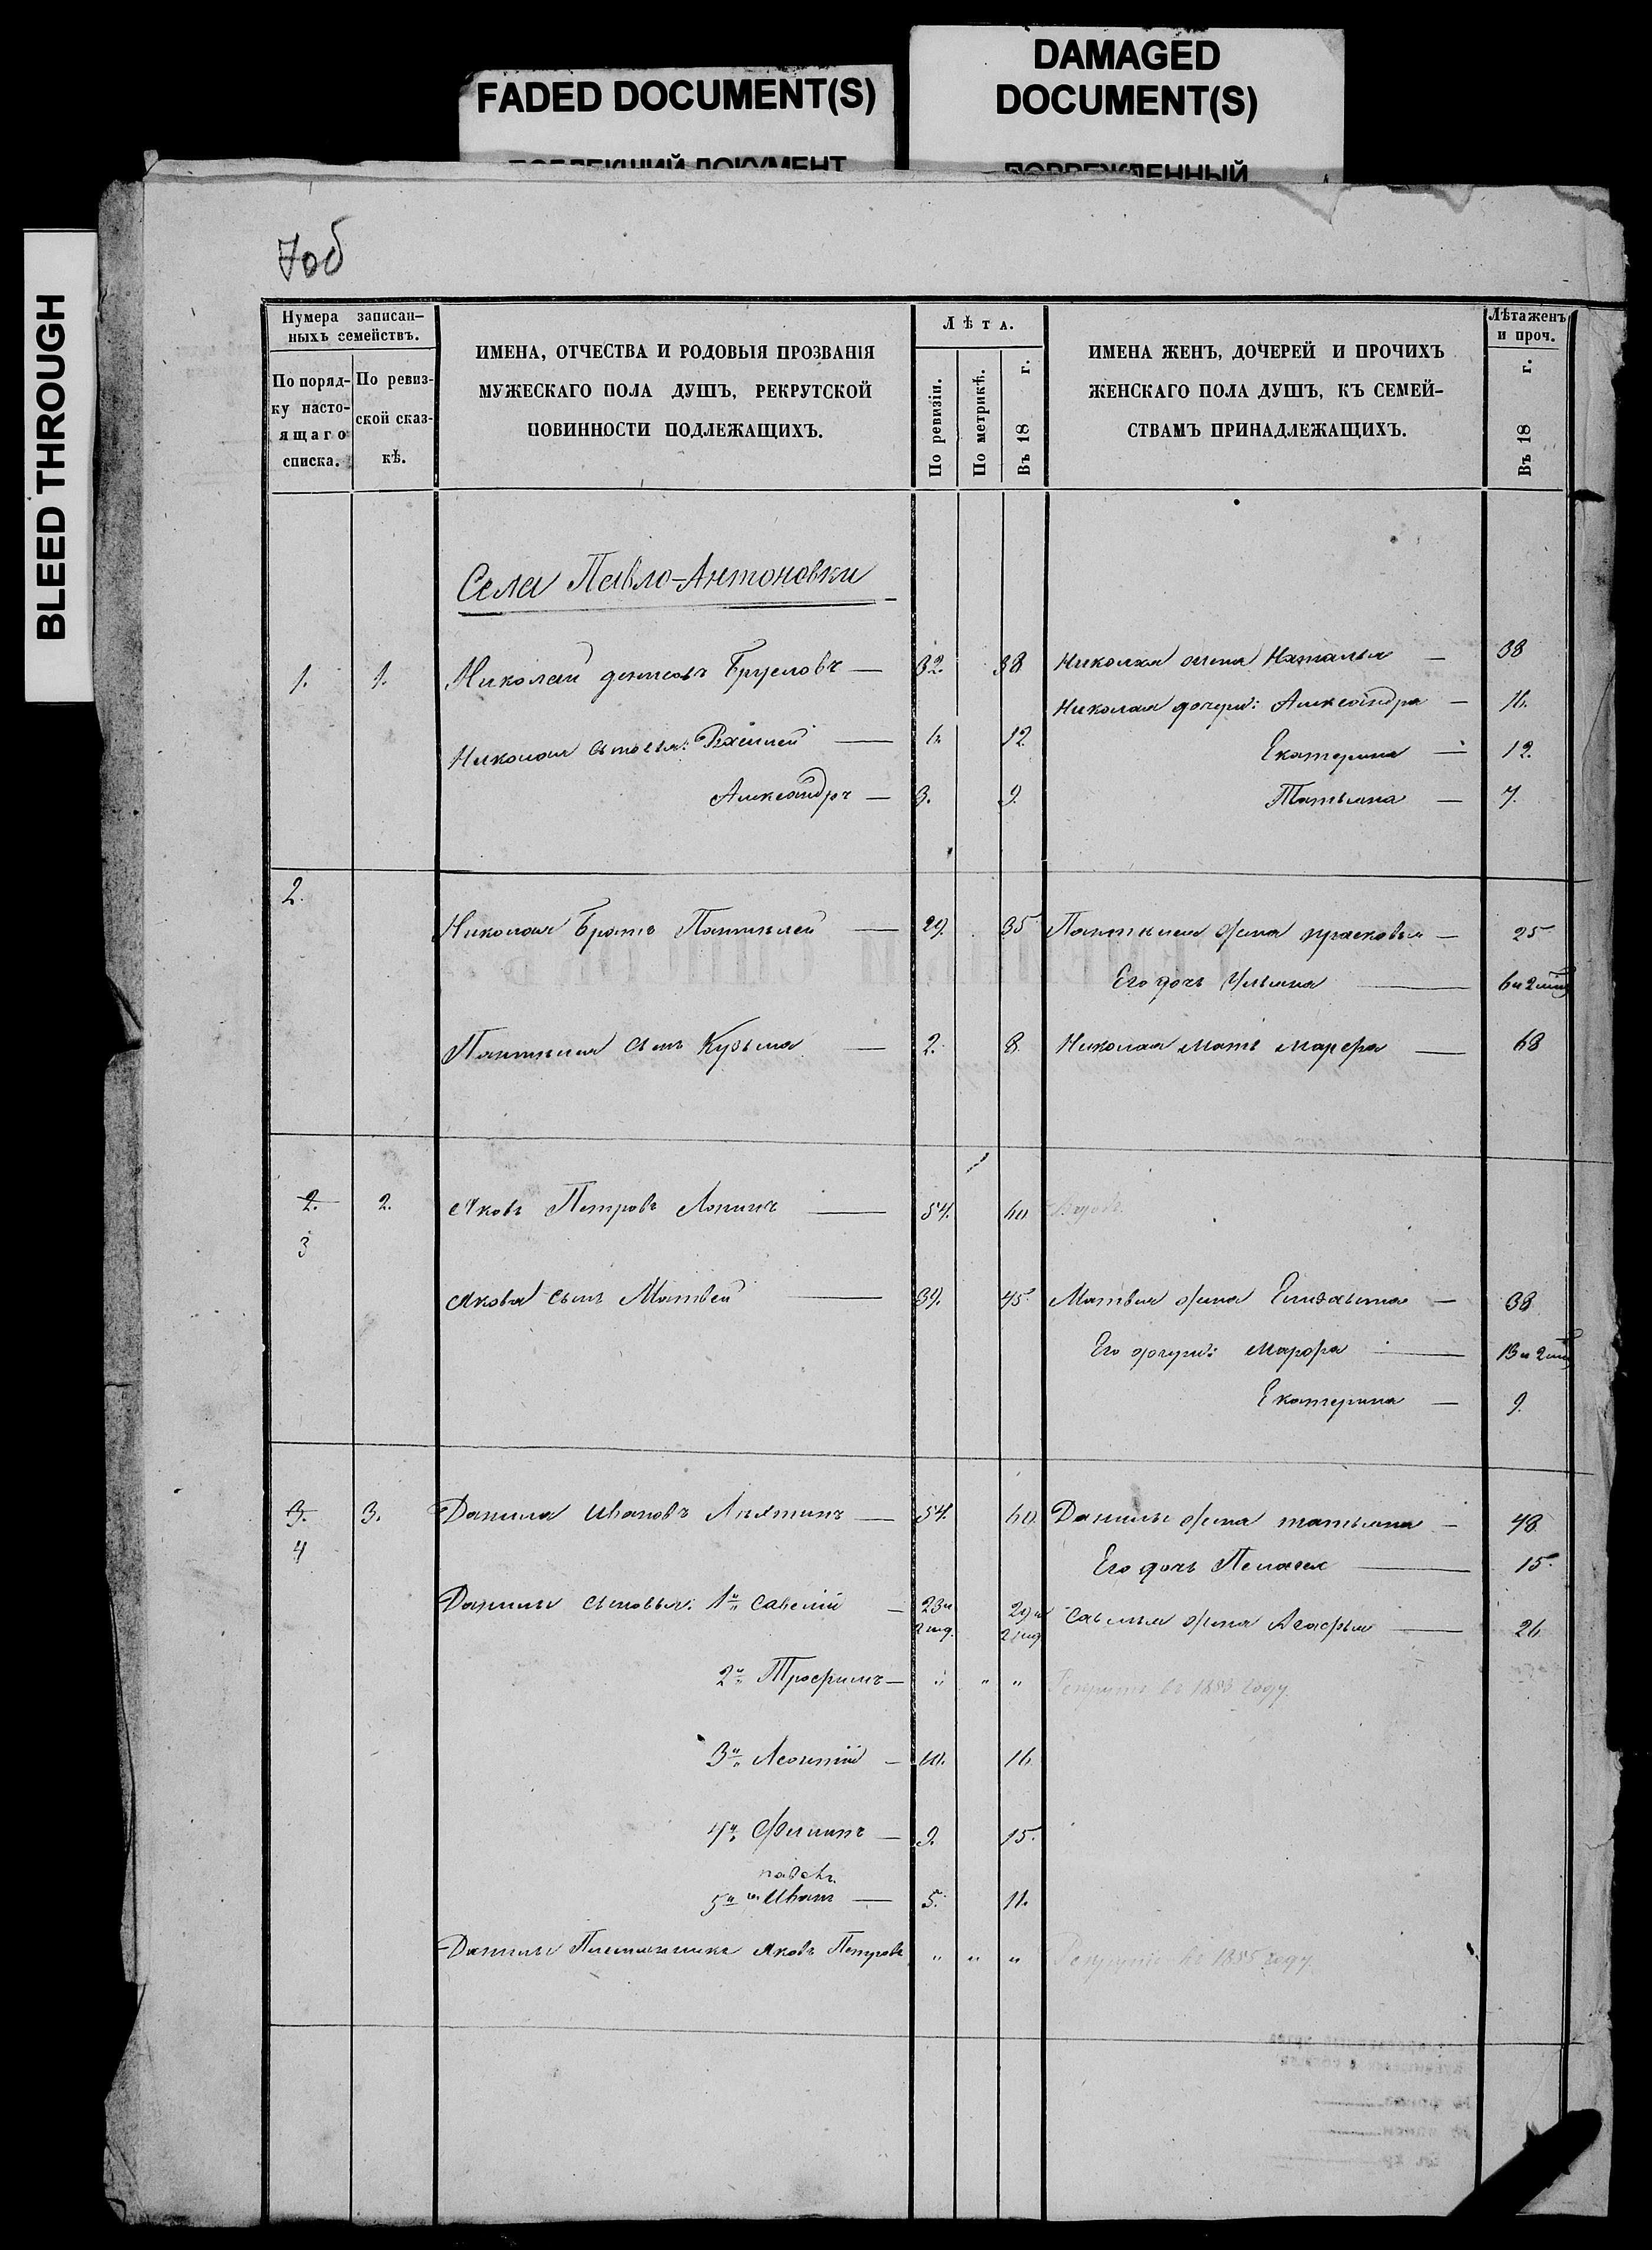 FADED DOCUMENT(S)
DAMAGED
DOCUMENT(S)
BLEED THROUGH
7об
Нумера записан-
ныхъ семействъ.
По поряд-
ку насто-
ящаго
списка.
По ревиз-
ской сказ-
кѣ.
ИМЕНА, ОТЧЕСТВА И РОДОВЫЯ ПРОЗВАНІЯ
МУЖЕСКАГО ПОЛА ДУШЪ, РЕКРУТСКОЙ
ПОВИННОСТИ ПОДЛЕЖАЩИХЪ.
Лѣта.
По ревизіи.
По метрикѣ.
Въ 18 г.
ИМЕНА ЖЕНЪ, ДОЧЕРЕЙ И ПРОЧИХЪ
ЖЕНСКАГО ПОЛА ДУШЪ, КЪ СЕМЕЙ-
СТВАМЪ ПРИНАДЛЕЖАЩИХЪ.
Лѣта женъ
и проч.
Въ 18 г.
Села Павло-Антоновки
1. 1. Николай Брусловъ — 32. 38 Николая жена Наталья — 38
Николая дочери: Александра — 16.
Николая сыновья: Василий — 6. 12 Екатерина — 12.
Александръ — 3. 9. Татьяна — 7.
2.
Николая Братъ Пантелей — 29. 35 Пантелея жена Прасковья — 25
Его дочь Ульяна — 6 и 2
Пантелея сынъ Кузьма — 2. 8. Николая мать Марфа — 68
2. 2. Яковъ Петровъ Лапинъ — 54. 60 Вдовъ
3
Якова сынъ Матвей — 39. 45. Матвея жена Елизавета — 38
Его дочери: Марфа — 13 и 2
Екатерина — 9.
3. 3. Данила Ивановъ — 54. 60. Данилы жена Татьяна — 48
4
Его дочь Пелагея — 15.
Данилы сыновья: 1й Савелий — 23 и 29 и Савелья жена Агафья — 26
2й Трофимъ — " " " Рекрутъ въ 1853 году.
3й Леонтий — 10. 16
4й Филипъ — 9. 15.
5й Иванъ — 5. 11.
Данилы Племянникъ Яковъ Петровъ " " " Рекрутъ въ 1855 году.